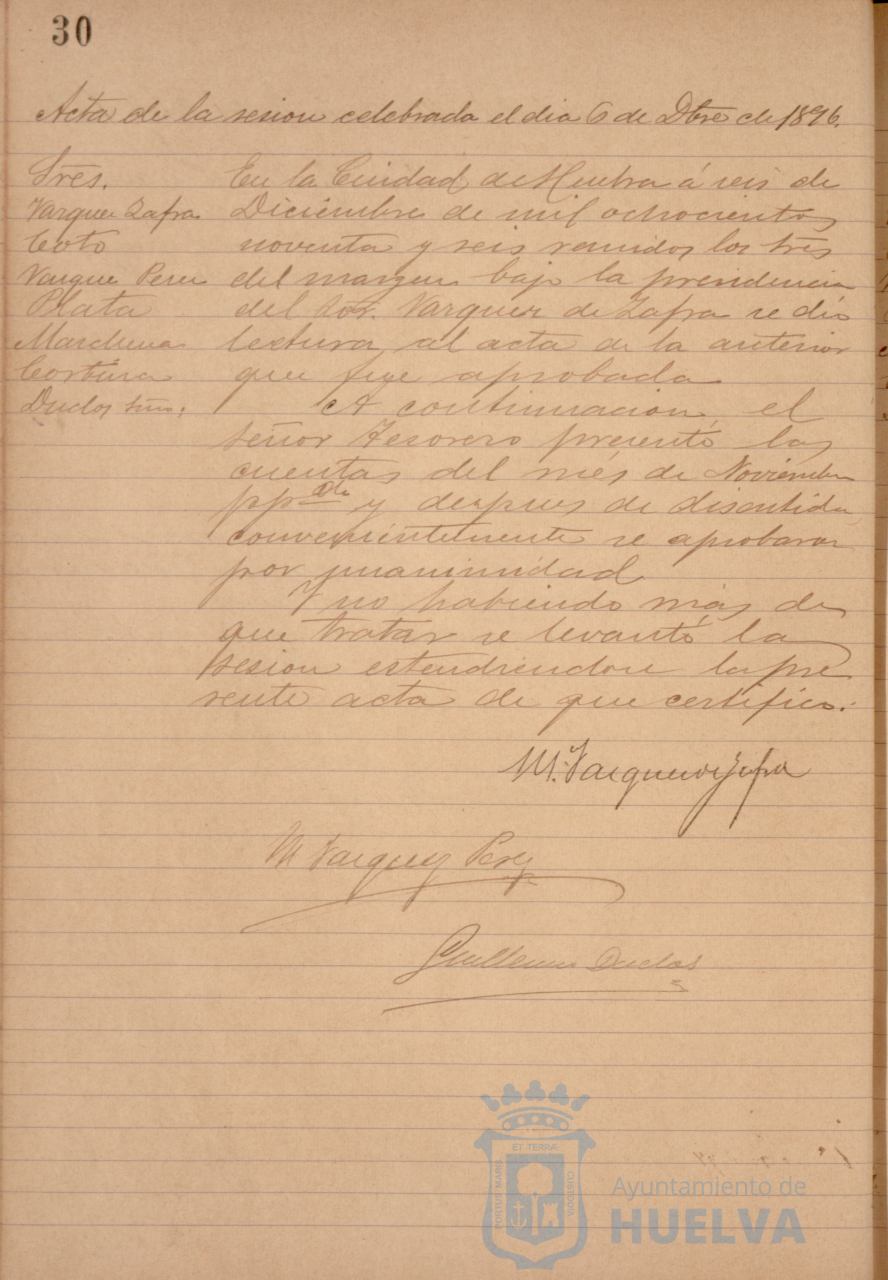 30
Acta de la sesion celebrada el dia 6 de Dbre de 1896.
Sres.
Vazquez Zafra
Coto
Vazquez Perez
Plata
Marchena
Cortina
Duclos Srio.
En la Ciudad de Huelva á seis de
Diciembre de mil ochocientos
noventa y seis reunidos los Sres
del margen bajo la presidencia
del Sor. Vazquez de Zafra se dió
lectura al acta de la anterior
que fue aprobada
A continuación el
señor Tesorero presentó las
cuentas del més de Noviembre
ppdo y despues de discutida
convenientemente se aprobaron
por unanimidad
Y no habiendo más de
que tratar se levantó la
sesion estendiendose la pre
sente acta de que certifico.
M. Vazquez de Zafra
M Vazquez Perez
Guillermo Duclos
ET TERRÆ
PORTUS MARIS
CUSTODIA
Ayuntamiento de
HUELVA